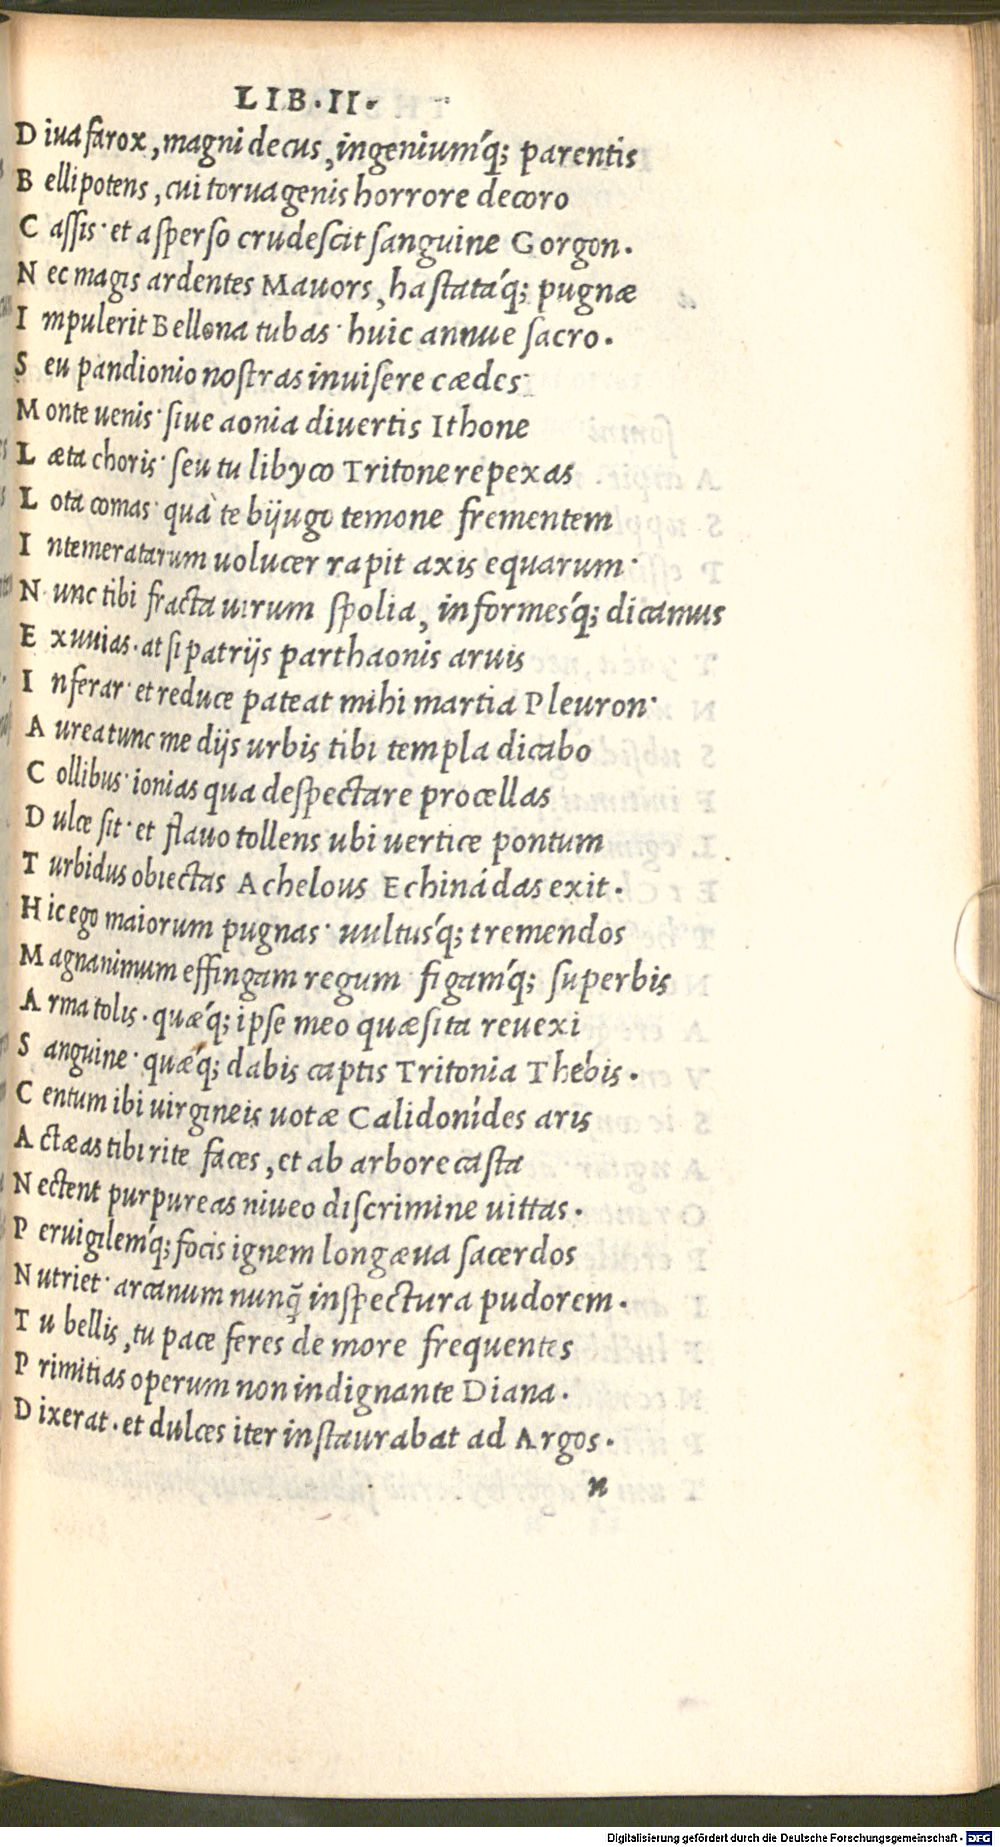 LIB.II.
D iua farox, magni decus, ingeniumq́; parentis
B ellipotens, cui torua genis horrore decoro
C aſſis· et aſperſo crudeſcit ſanguine Gorgon.
N ec magis ardentes Mauors, haſtataq́; pugnæ
I mpulerit Bellona tubas· huic annue ſacro.
S eu pandionio noſtras inuiſere cædes
M onte uenis· ſiue aonia diuertis Ithone
L æta choris· ſeu tu libyco Tritone repexas
L ota comas· quà te biiugo temone frementem
I ntemeratarum uolucer rapit axis equarum·
N unc tibi fracta uirum ſpolia, informesq́; dicamus
E xuuias. at ſi patrijs parthaonis aruis
I nferar· et reduce pateat mihi martia Pleuron·
A urea tunc me dijs urbis tibi templa dicabo
C ollibus· ionias qua deſpectare procellas
D ulce ſit· et flauo tollens ubi uertice pontum
T urbidus obiectas Achelous Echinádas exit.
H ic ego maiorum pugnas· uultusq́; tremendos
M agnanimum effingam regum figamq́; ſuperbis
A rma tolis. quæq́; ipſe meo quæſita reuexi
S anguine· quæq́; dabis captis Tritonia Thebis.
C entum ibi uirgineis uotæ Calidonídes aris
A ctæas tibi rite faces, et ab arbore caſta
N ectent purpureas niueo diſcrimine uittas.
P eruigilemq́; focis ignem longæua ſacerdos
N utriet· arcanum nunq̃ inſpectura pudorem.
T u bellis, tu pace feres de more frequentes
P rimitias operum non indignante Diana.
D ixerat. et dulces iter inſtaurabat ad Argos.
n
Digitalisierung gefördert durch die Deutsche Forschungsgemeinschaft - DFG